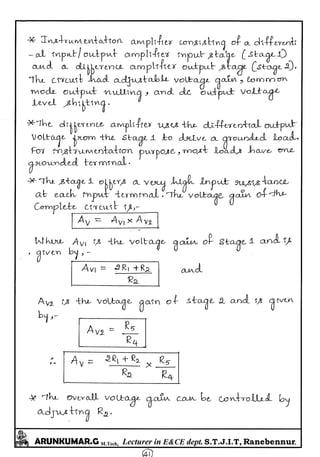 * Instrumentation amplifier consisting of a differenti
-al input/output amplifier input stage (stage 1)
and a difference amplifier output stage (stage 2).
The circuit had adjustable voltage gain, common
mode output nulling, and dc output voltage
level shifting.
* The difference amplifier uses the differential output
voltage from the stage 1 to drive a grounded load.
For instrumentation purpose, most loads have one
grounded terminal.
* The stage 1 offers a very high input resistance
at each input terminal. The voltage gain of the
Complete circuit is,-
Av = Av1 × Av2
Where Av1 is the voltage gain of stage 1 and is
, given by,-
Av1 = 2R1 + R2 / R2 and
Av2 is the voltage gain of stage 2 and is given
by,-
Av2 = R5 / R4
∴ Av = 2R1 + R2 / R2 × R5 / R4
* The overall voltage gain can be controlled by
adjusting R2.
ARUNKUMAR.G M.Tech, Lecturer in E&CE dept. S.T.J.I.T, Ranebennur.